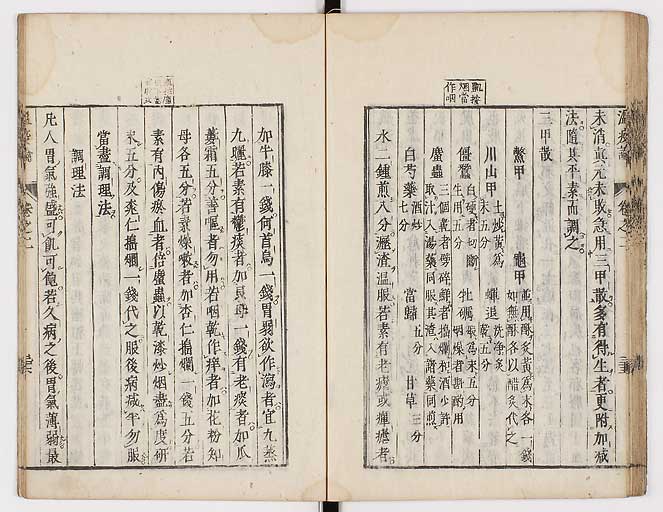 凱按
烟當
作咽
未消真元未敗急用三甲散多有得生者更附加減
法隨其平素而調之
三甲散
鱉甲
龜甲
並用酥炙黃為末各一錢
如無酥各以醋炙代之
川山甲
土炒黃為
末五分
蟬退
洗淨炙
乾五分
僵蠶
白硬者切斷
生用五分
牡蠣
煅為末五分
咽燥者斟酌用
䗪蟲
三個乾者劈碎鮮者搗爛和酒少許
取汁入湯藥同服其渣入諸藥同煎
白芍藥
酒炒
七分
當歸
五分
甘草
三分
水二鍾煎八分瀝渣温服若素有老瘧或癉瘧者
加牛膝一錢何首烏一錢胃弱欲作瀉者宜九蒸
九曬若素有鬱痰者加貝母一錢有老痰者加瓜
蔞霜五分善嘔者勿用若咽乾作痒者加花粉知
母各五分若素燥嗽者加杏仁搗爛一錢五分若
素有内傷瘀血者倍䗪蟲以乾漆炒烟盡為度研
末五分及桃仁搗爛一錢代之服後病減半勿服
當盡調理法
調理法
凡人胃氣強盛可飢可飽若久病之後胃氣薄弱最